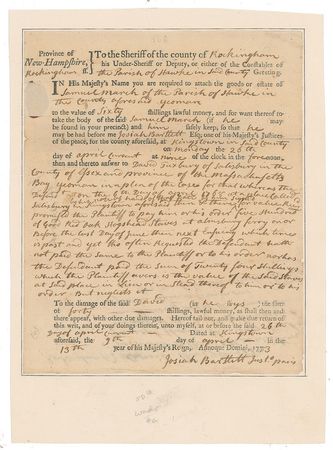 Province of
New-Hampshire,
Rockingham ss
To the Sheriff of the county of Rockingham
his Under-Sheriff or Deputy, or either of the Constables of
the Parish of Hawke in Said County Greeting.
IN His Majesty's Name you are required to attach the goods or estate of
Samuel March of the Parish of Hawke in
the County aforesaid Yeoman
to the value of Sixty shillings lawful money, and for want thereof to
take the body of the said Samuel March (if he may
be found in your precinct) and him safely keep, so that he
may be had before me Josiah Bartlett Esq; one of his Majesty's Justices
of the peace, for the county aforesaid, at Kingstown in said County
on monday the 26th
day of april Currant at nine of the clock in the fore-noon,
then and thereto answer to David of Salisbury in the
County of Essex and province of the Massachusetts
Bay Yeoman in a plea of the Case for that whereas the
Defendt on the 6th Day of
Salisbury in Kingstown aforesaid
promised the Plaintiff to pay him or his order five Hundred
of Good Red Oak Hogshead Staves at ferry on or
before the last Day of June then next Ensuing which time is
past and yet tho often Requested the Defendant hath
not paid the same to the Plaintiff or to his order
the Defendant paid the Sum of Twenty four Shillings
which the Plaintiff avers is the value of the Said Staves
at Said place in Stead thereof to him or to his
order But neglects it
To the damage of the said David (as he says) the sum
of forty shillings, lawful money, as shall then and
there appear, with other due damages. Hereof fail not, and make due return of
this writ, and of your doings therein, unto myself, at or before the said 26th
Day of april Currant Dated at Kingstown
aforesaid, the 9th day of april in the
13th year of his Majesty's Reign, Annoque Domini, 1773
Josiah Bartlett Just. pacis